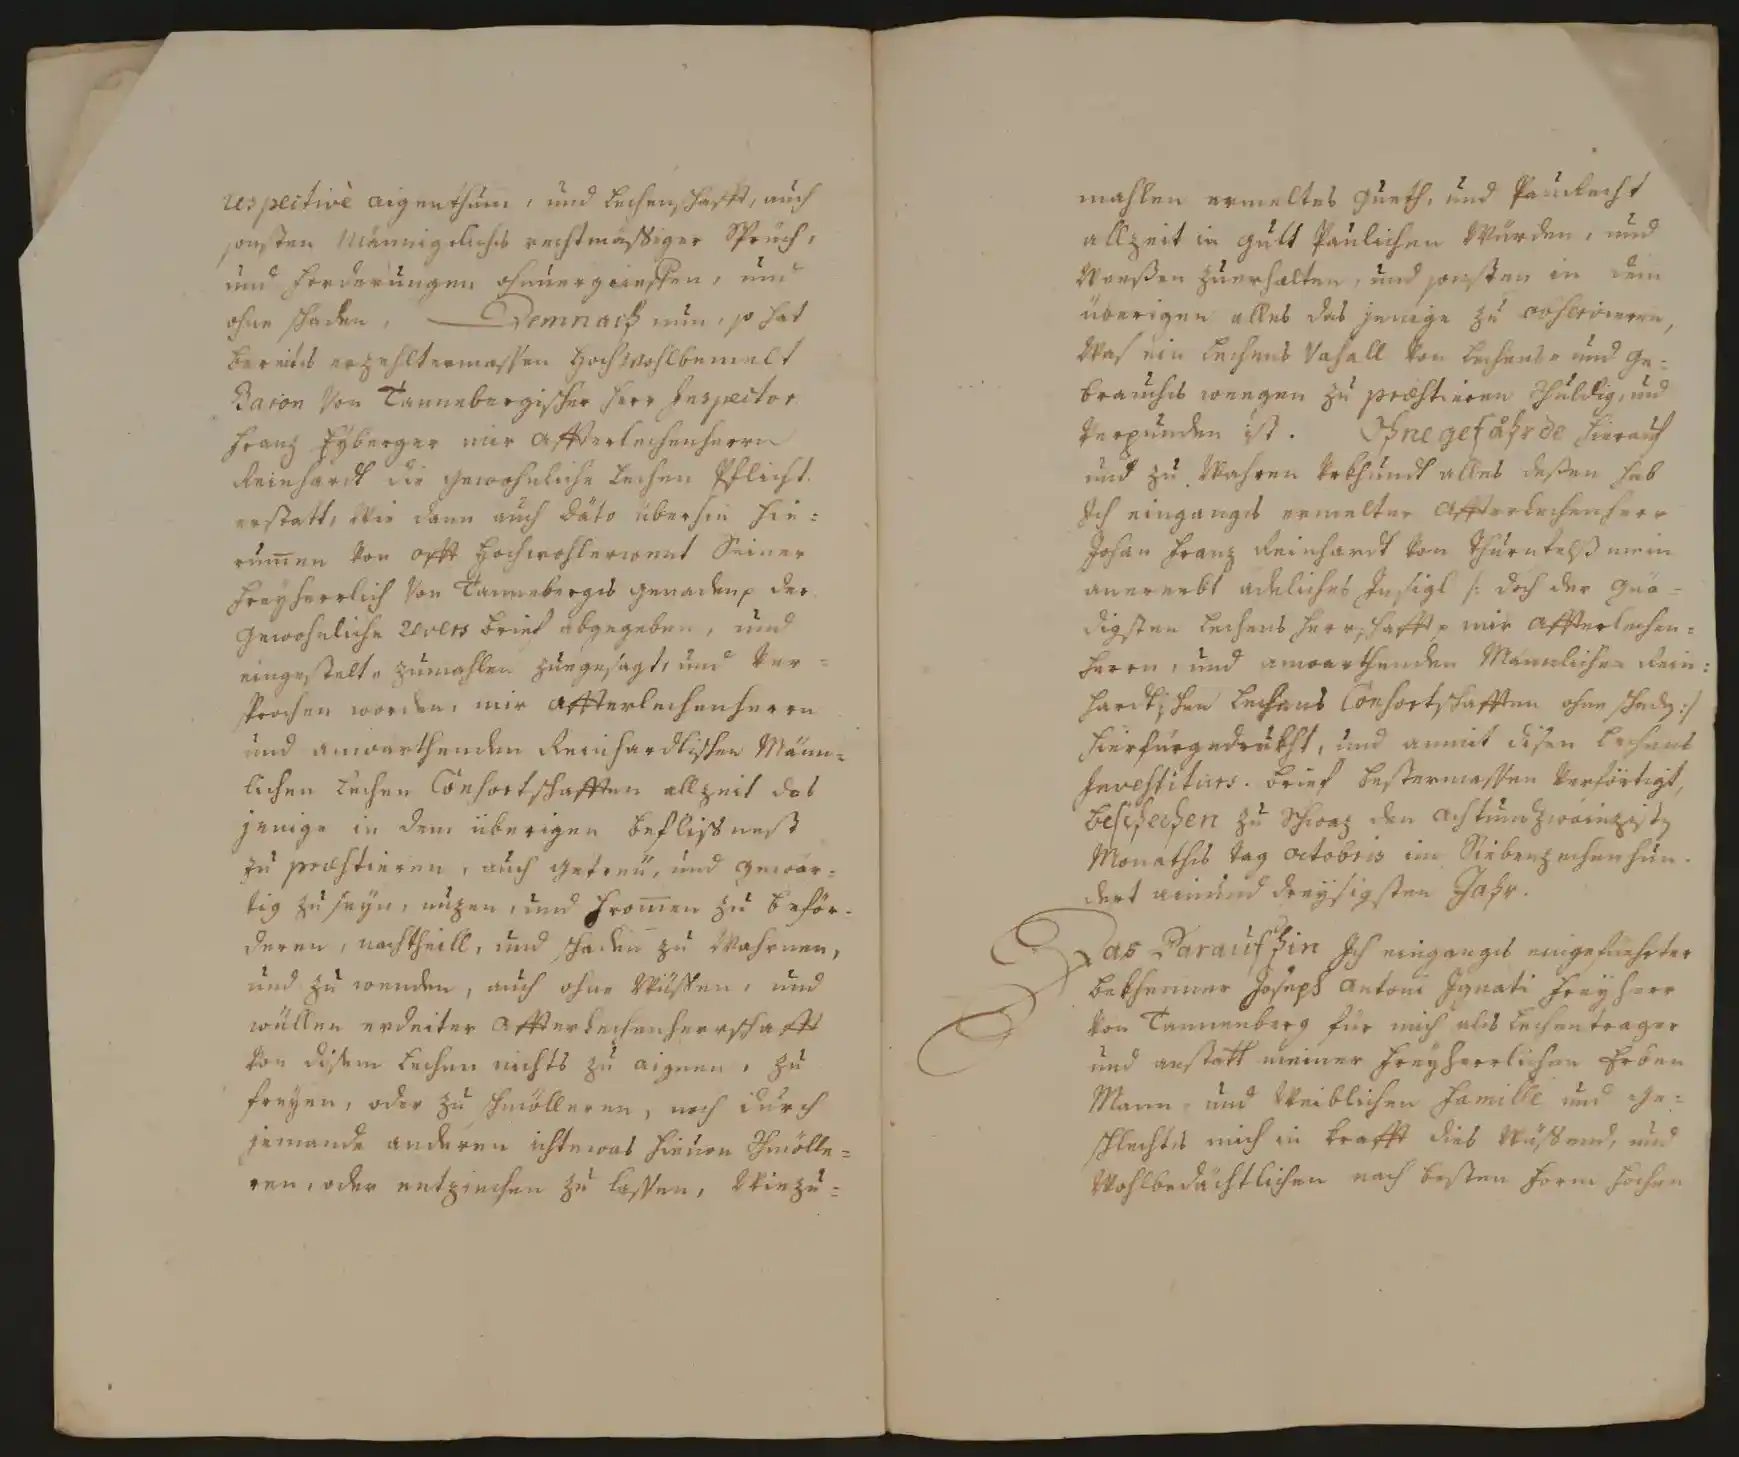 respective aigenthum, und Lechenschafft, auch
sonsten Männigelichs rechtmässiger Sprüch,
und Forderungen ohnuergriffen, und
ohne schaden, Demnach nun, so hat
bereits erzehltermassen Hochwohlbemelt
Baron Von Tannebergischer Herr Inspector
Franz Eyberger mir Affterlechenherrn
Reinhardt die gewohnliche Lechen Pflicht
erstatt, wie dann auch dato überhin hie=
rumen von offt Hochwohlerment Seiner
Freyherrlich Von Tannebergis genaden, der
gewohnliche Revers brief abgegeben, und
eingestelt, zumahlen zuegesagt, und Ver=
sprochen worden, mir Affterlechenherrn
und anwarthenden Reinhardtischen Männ=
lichen Lechen Consortschafften allzeit das
jenige in dem überigen beflissnest
zu præstieren, auch getreü, und gewär=
tig zu seyn, nuzen, und Fromen zu beför=
deren, nachtheill, und schaden zu Wahrnen,
und zu wenden, auch ohne Wüssen, und
wüllen erdeiter Affterlechenherrschafft
von disem Lechen nichts zu aignen, zu
freyen, oder zu schmölleren, noch durch
jemands anderen ichtewas hieuon schmölle=
ren, oder entziechen zu lassen, Wiezu=
mahlen ermeltes gueth, und Paurecht
allzeit in guet Paulichen Würden, und
Weesen zuerhalten, und sonsten in dem
überigen alles das jenige zu observieren,
Was ein Lechens Vasall von Lechens= und Ge=
brauchs weegen zu præstieren schuldig, und
verpunden ist. Ohne gefährde hierauf
und zu Wahren Vrkhundt alles dessen hab
Ich eingangs ermelter Affterlechenherr
Johan Franz Reinhardt von Thurnfelss mein
anererbt adeliches Insigl /: doch der gnä=
digsten Lechens herrschafft, mir Affterlechen=
herrn, und anwarthenden Mannlichen Rein=
hardtischen Lechens Consortschafften ohne schadn :/
hierfürgedrukht, und anmit disen Lechens
Investiturs. brief bestermassen Verförtigt,
Beschechen zu Schwaz den achtundzwainzistn
Monaths tag octobris im Sibenzechenhun=
dert ainund dreysigsten Jahr.
Das Daraufhin Ich eingangs eingefuehrter
bekhenner Joseph Antoni Ignati Freyherr
von Tannenberg für mich als Lechentrager
und anstatt meiner Freyherrlichen Erben
Mann= und Weiblichen Famille und Ge=
schlechts mich in krafft dis Wüssend, und
Wohlbedächtlichen nach besten Form hechen